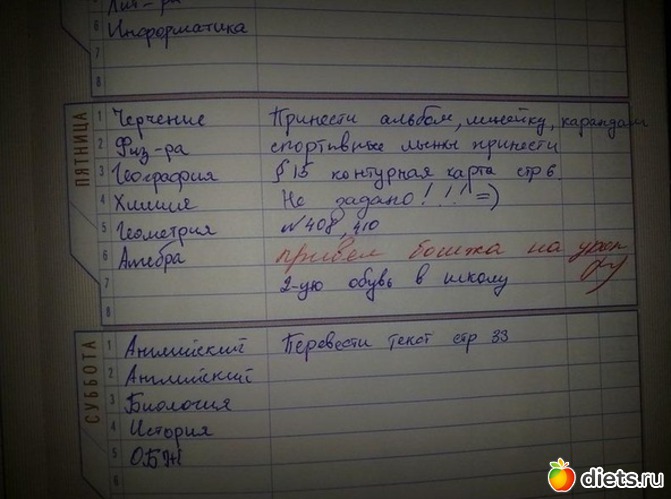 Лит-ра
6 Информатика
7
8
ПЯТНИЦА
1 Черчение Принести альбом, линейку, карандаш
2 Физ-ра спортивные лыжи принести
3 География § 15 контурная карта стр 6.
4 Химия Не задано!!! =)
5 Геометрия №408, 410
6 Алгебра привел бомжа на урок
7 2-ую обувь в школу
8
СУББОТА
1 Английский Перевести текст стр 33
2 Английский
3 Биология
4 История
5 ОБЖ
6
diets.ru